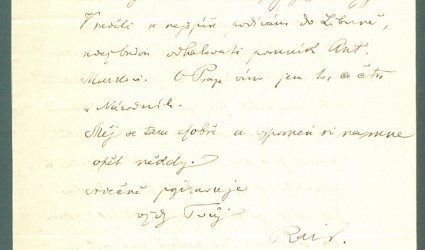 V neděli se nejspíš podívám do Libuně,
kdež budou odhalovati pomník Ant.
Markovi. O Praze vím jen to, co čtu
v Národních.
Měj se tam dobře a vzpomeň si na mne
opět někdy.
Srdečně pozdravuje
vždy Tvůj
Rais.